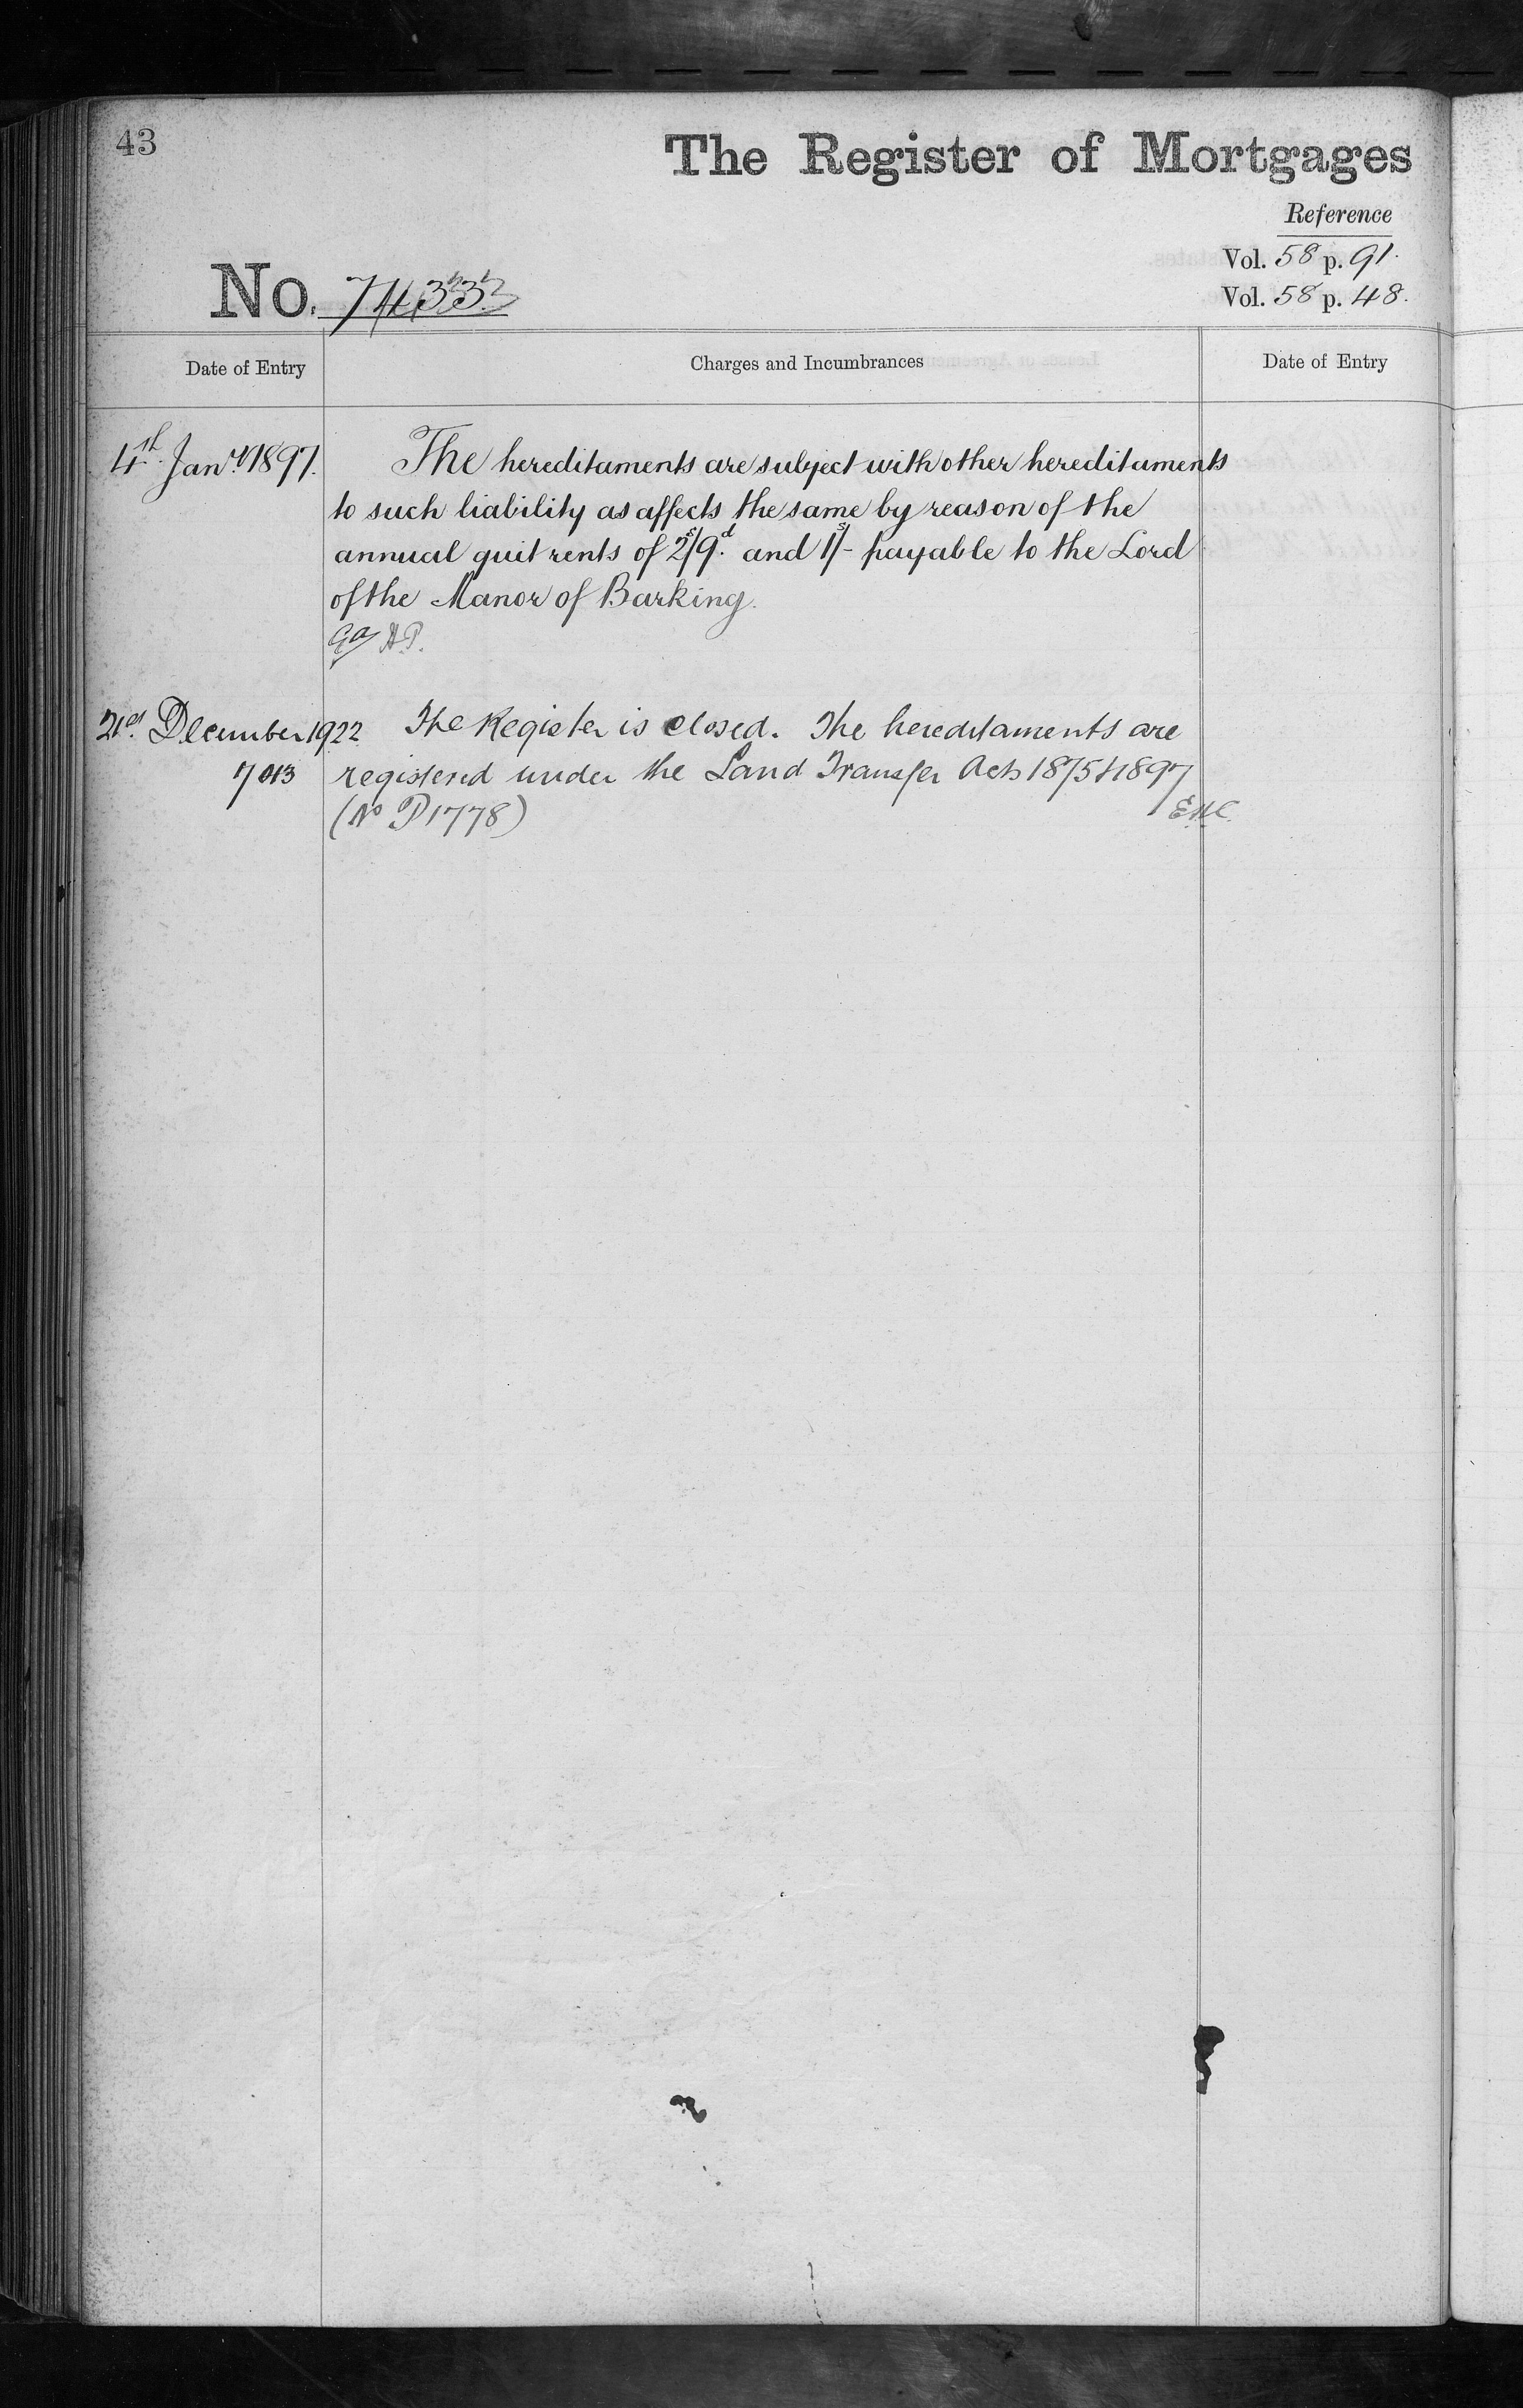 43
The Register of Mortgages
Reference
Vol. 58 p. 91.
Vol. 58 p. 48.
No. 7433
Date of Entry
Charges and Incumbrances
Date of Entry
4th Jany 1897.
The hereditaments are subject with other hereditaments
to such liability as affects the same by reason of the
annual quit rents of 2s/9d. and 1s/- payable to the Lord
of the Manor of Barking.
21st December 1922
The Register is closed. The hereditaments are
7013
registered under the Land Transfer Acts 1875 & 1897
(No P1778)